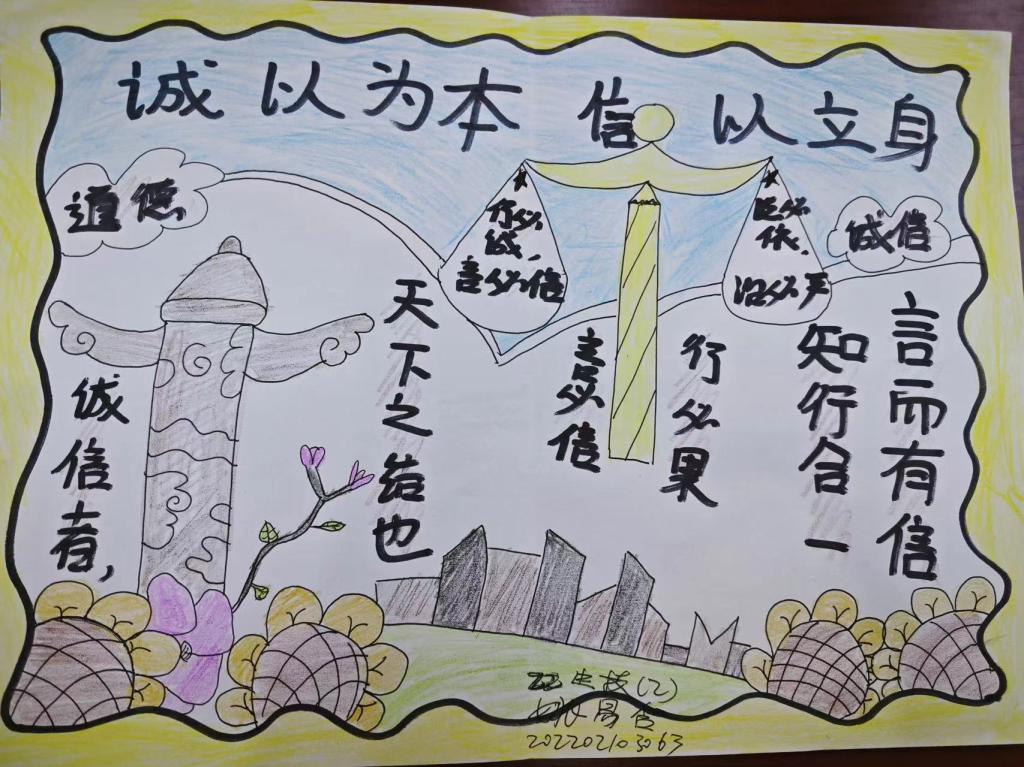 诚以为本 信以立身
道德
行必
诚,
言必信
必
依,
治必严
诚信
诚信者,
天下之结也
言必信
行必果
知行合一
言而有信
生技(2)
202202103063